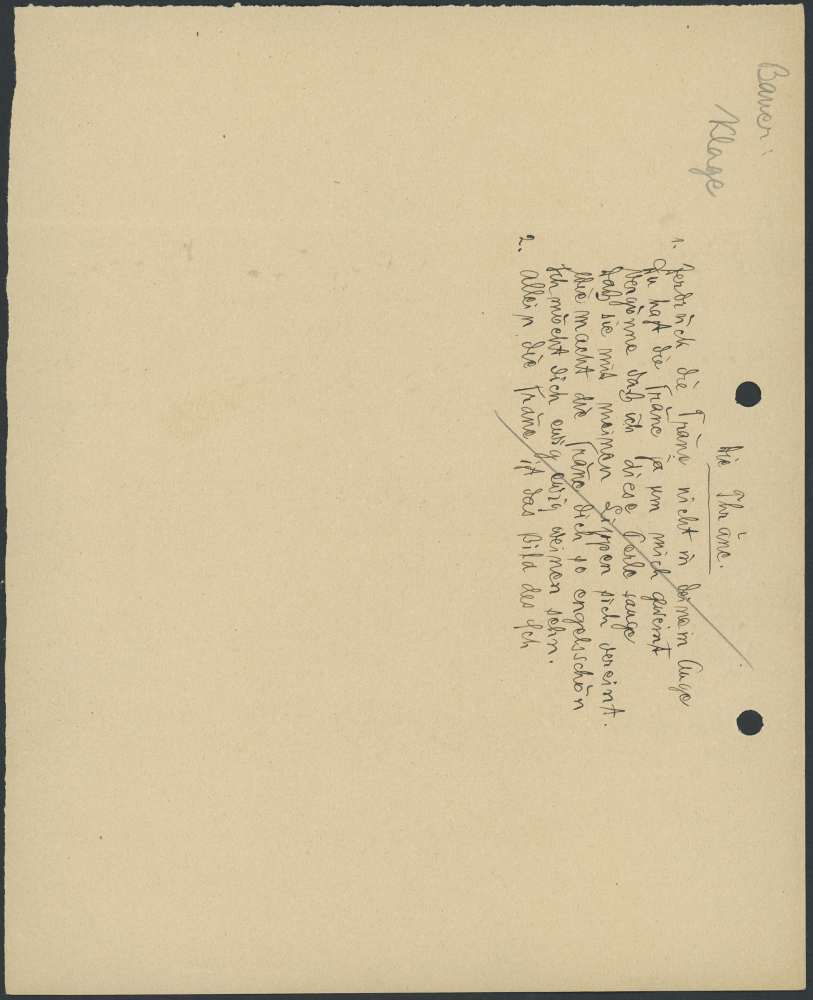 Bauer:
Klage
Die Thräne.
1. Zerdrück die Träne nicht in deinem Auge
Du hast die Träne ja um mich geweint
Vergönne daß ich diese Perle sauge
daß sie mit meinen Lippen sich vereint.
Wie macht die Träne dich so engelsschön
Ich möcht dich ewig ewig weinen sehn.
2. Allein die Träne ist das Bild des Ich